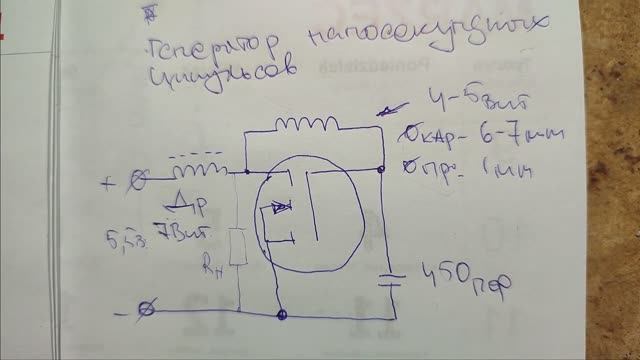 Генератор наносекундных
импульсов
4-5 вит
Øкар- 6-7 mm
Øпр- 1 mm
+
Др
5,5в. 7 вит
Rн
450 пФ
-